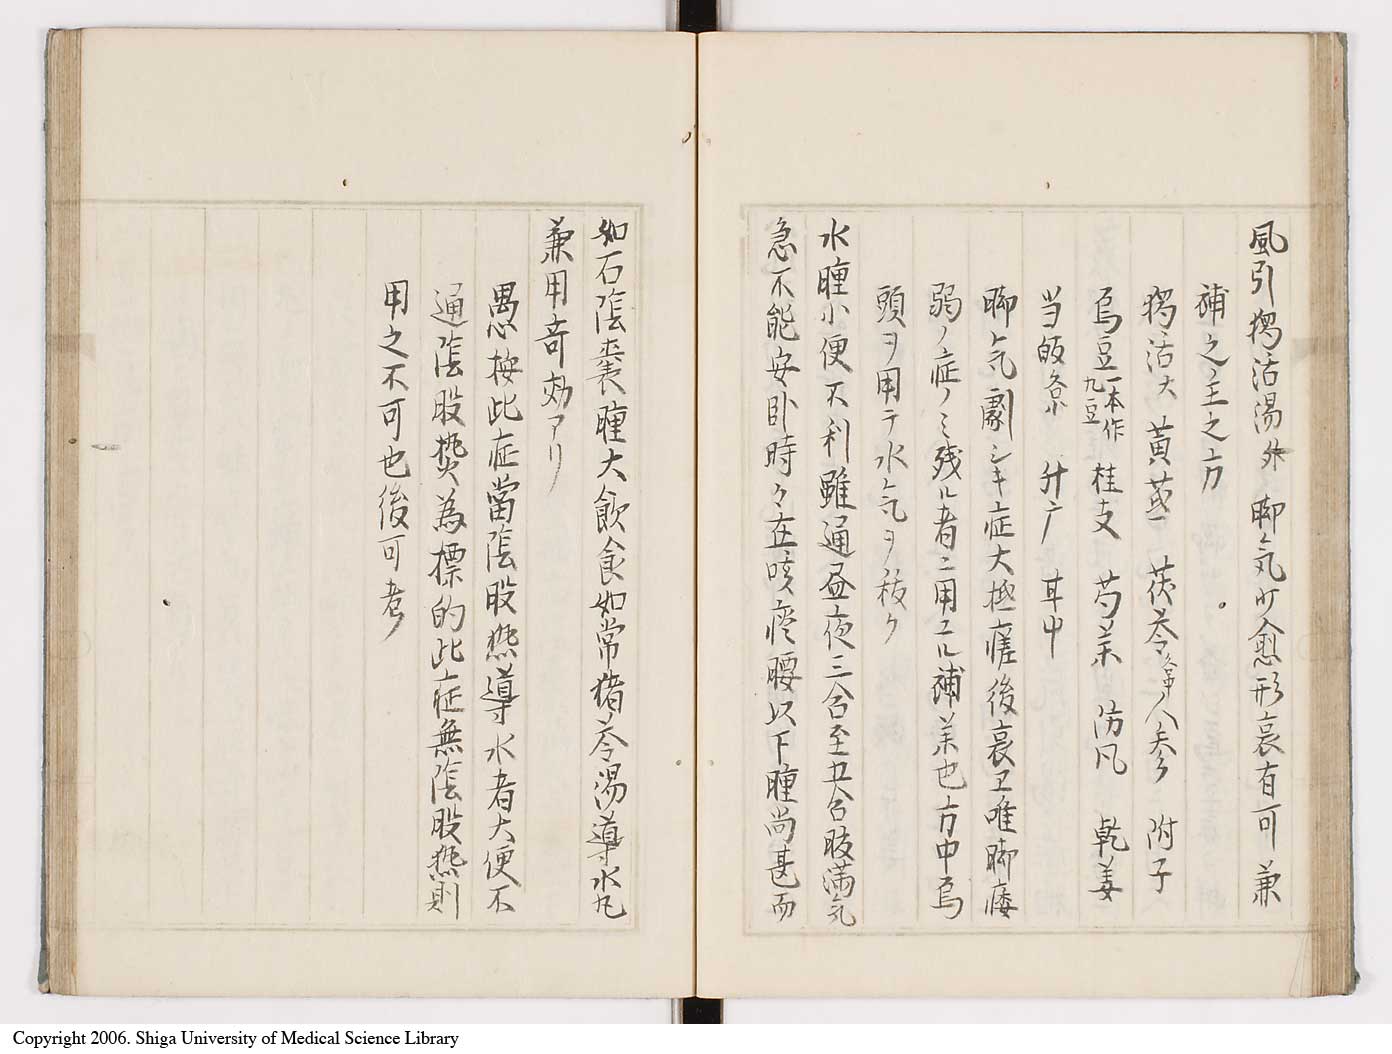 風引獨活湯 外 脚気少愈形衰有可兼
補之主之方
獨活大 黄芪 茯苓 各中 人参 附子
烏豆 一本作九豆 桂支 芍薬 防風 乾姜
当皈 各小 升广 甘中
脚気劇シキ症大抵瘥後衰卫唯脚痿
弱ノ症ノミ残ル者ニ用ユル補薬也方中烏
頭ヲ用テ水気ヲ抜ク
水腫小便不利雖通昼夜三合至五合腹満気
急不能安臥時々在咳痰腰以下腫尚甚而
如石陰嚢腫大飲食如常猪苓湯導水丸
兼用奇効アリ
愚按此症當陰股熱導水者大便不
通陰股熱為標的此症無陰股熱則
用之不可也後可考
Copyright 2006. Shiga University of Medical Science Library